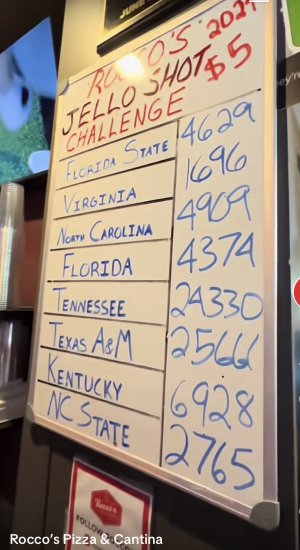 JUNE
ROCCO'S 2024
JELLO SHOT
CHALLENGE $5
FLORIDA STATE 4629
VIRGINIA 1696
NORTH CAROLINA 4909
FLORIDA 4374
TENNESSEE 24330
TEXAS A&M 2566
KENTUCKY 6928
NC STATE 2765
Rocco's
FOLLOW
Rocco's Pizza & Cantina